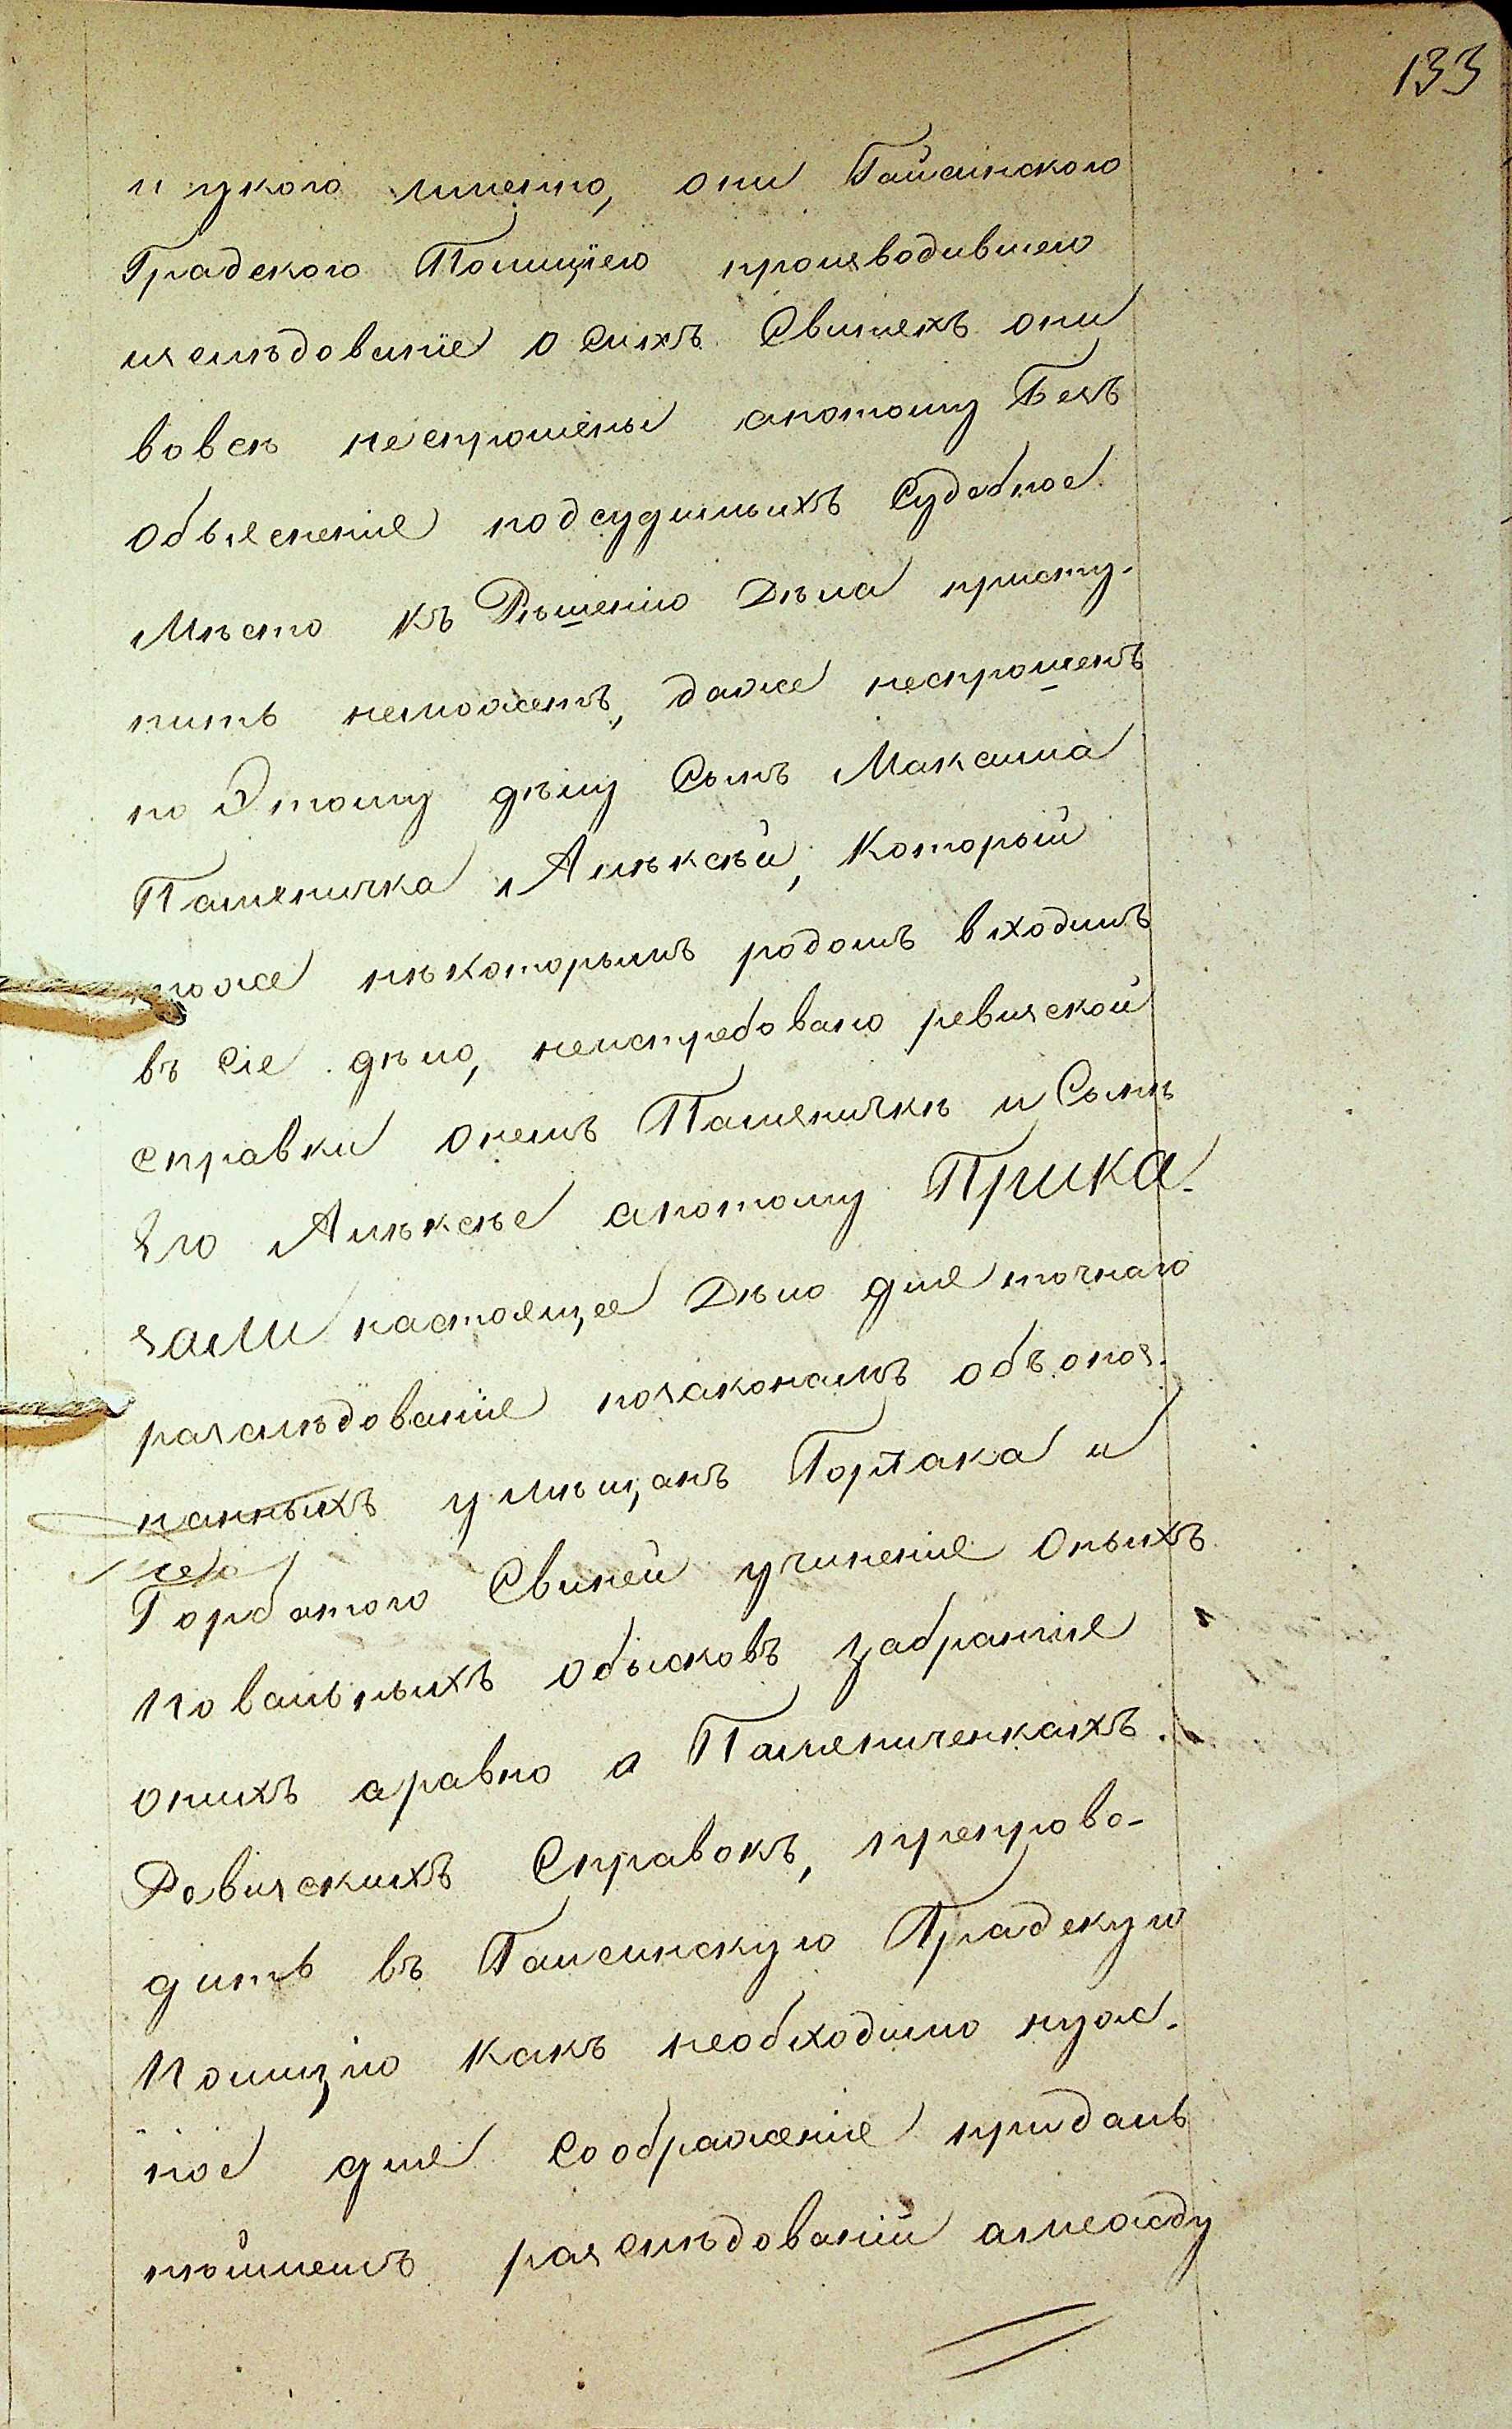 133
и укого именно, они Гайсинского
Градского Полицiею производившею
изслѣдованіе о сихъ Свиняхъ они
вовсѣ неспрошены апотому Безъ
объясненія подсудимыхъ Судебное
Мѣсто къ Рѣшенію Дѣла присту-
пить неможетъ, даже неспрошенъ
по Этому дѣлу Сынъ Максима
Паляничка Алѣксѣй, Который
тоже нѣкоторымъ родомъ входитъ
въ сіе дѣло, неистребовано ревизской
справки онемъ Паляничкѣ и Сынѣ
Его Алѣксѣе апотому Прика-
зали настоящее Дѣло для точнаго
разслѣдованія позаконамъ объ опоз-
нанныхъ у мѣщанъ Горпака и
Горбатого Свиней учиненія Оныхъ
повальныхъ обысковъ забранія
онихъ аравно о Паляниченкахъ
Ревизскихъ Справокъ, препрово-
дить въ Гайсинскую Градскую
Полицію Какъ необходимо нуж-
ное для Соображенія придаль
нѣйшемъ разслѣдованіи амежду